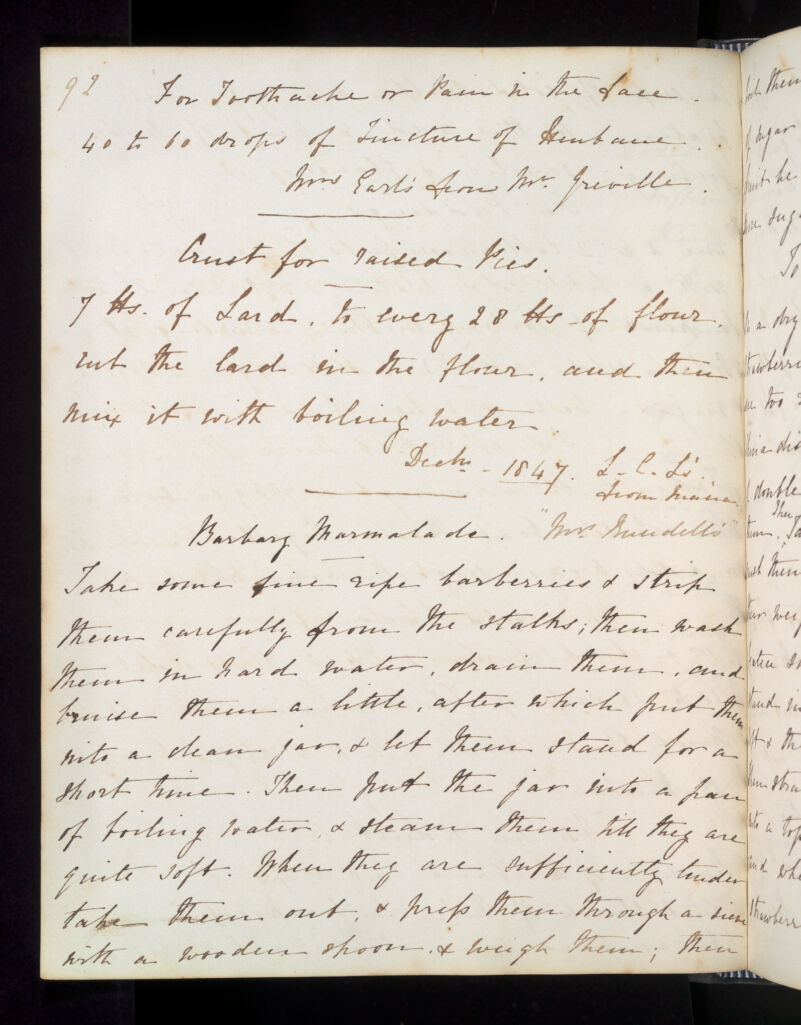 92 For Toothache or Pain in the face.
40 to 60 drops of Tincture of Henbane.
Mrs Earl's from Mr. Greville.
Crust for raised Pies.
7 lbs. of Lard, to every 28 lbs. of flour,
rub the lard in the flour, and then
mix it with boiling water.
Decbr. 1847. L. C. L's
from
Barbary Marmalade. "Mrs Rundell's"
Take some fine ripe barberries & strip
them carefully from the stalks; then wash
them in hard water, drain them, and
bruise them a little, after which put them
into a clean jar, & let them stand for a
short time. Then put the jar into a pan
of boiling water, & steam them till they are
quite soft. When they are sufficiently tender
take them out, & press them through a sieve
with a wooden spoon, & weigh them; then
them
of sugar
fruit be
To
in a dry
Strawberri
too
double
Then
them
and whe
Strawberr